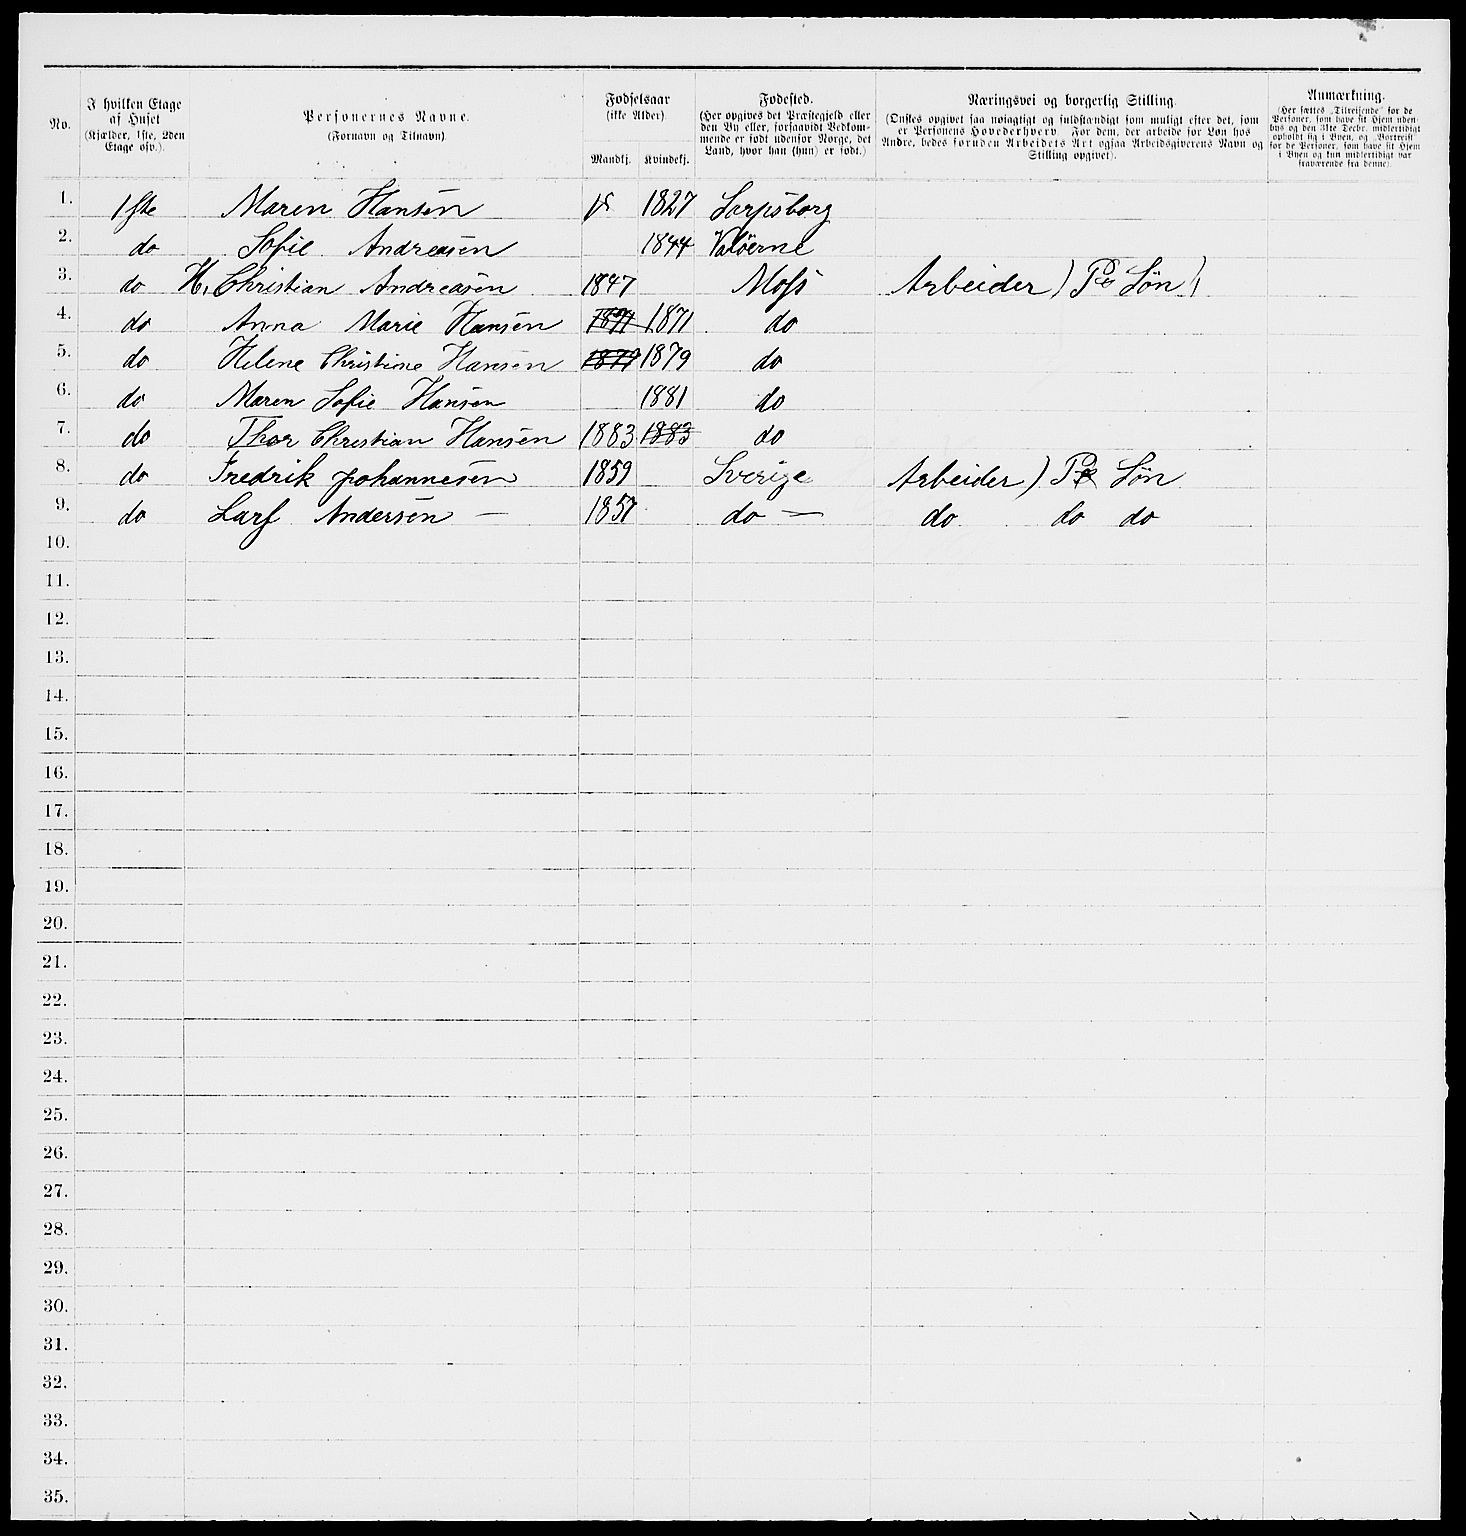 No.
I hvilken Etage af Huset (Kjælder, 1ste, 2den Etage osv.).
Personernes Navne. (Fornavn og Tilnavn).
Fødselsaar (ikke Alder).
Mandkj. Kvindekj.
Fødested. (Her opgives det Præstegjeld eller den By eller, forsaavidt Vedkommende er født udenfor Norge, det Land, hvor han (hun) er født.)
Næringsvei og borgerlig Stilling. (Ønskes opgivet saa nøiagtigt og fuldstændigt som muligt efter det, som er Personens Hovederhverv. For dem, der arbeide for Løn hos Andre, bedes foruden Arbeidets Art ogsaa Arbeidsgiverens Navn og Stilling opgivet).
Anmærkning. (Her sættes „Tilreisende“ for de Personer, som have sit Hjem udenbys og den 31te Decbr. midlertidigt opholdt sig i Byen, og „Bortreist“ for de Personer, som have sit Hjem i Byen og kun midlertidigt var fraværende fra denne).
1. 1ste Maren Hansen 18 1827 Sarpsborg
2. do Sofie Andreasen 1844 Valöerne
3. do H. Christian Andreasen 1847 Moss Arbeider ) Søn
4. do Anna Marie Hansen 1871 1871 do
5. do Helene Christine Hansen 1879 1879 do
6. do Maren Sofie Hansen 1881 do
7. do Thor Christian Hansen 1883 1883 do
8. do Fredrik Johannesen 1859 Sverige Arbeider ) Søn
9. do Lars Andersen — 1857 do — do do do
10.
11.
12.
13.
14.
15.
16.
17.
18.
19.
20.
21.
22.
23.
24.
25.
26.
27.
28.
29.
30.
31.
32.
33.
34.
35.